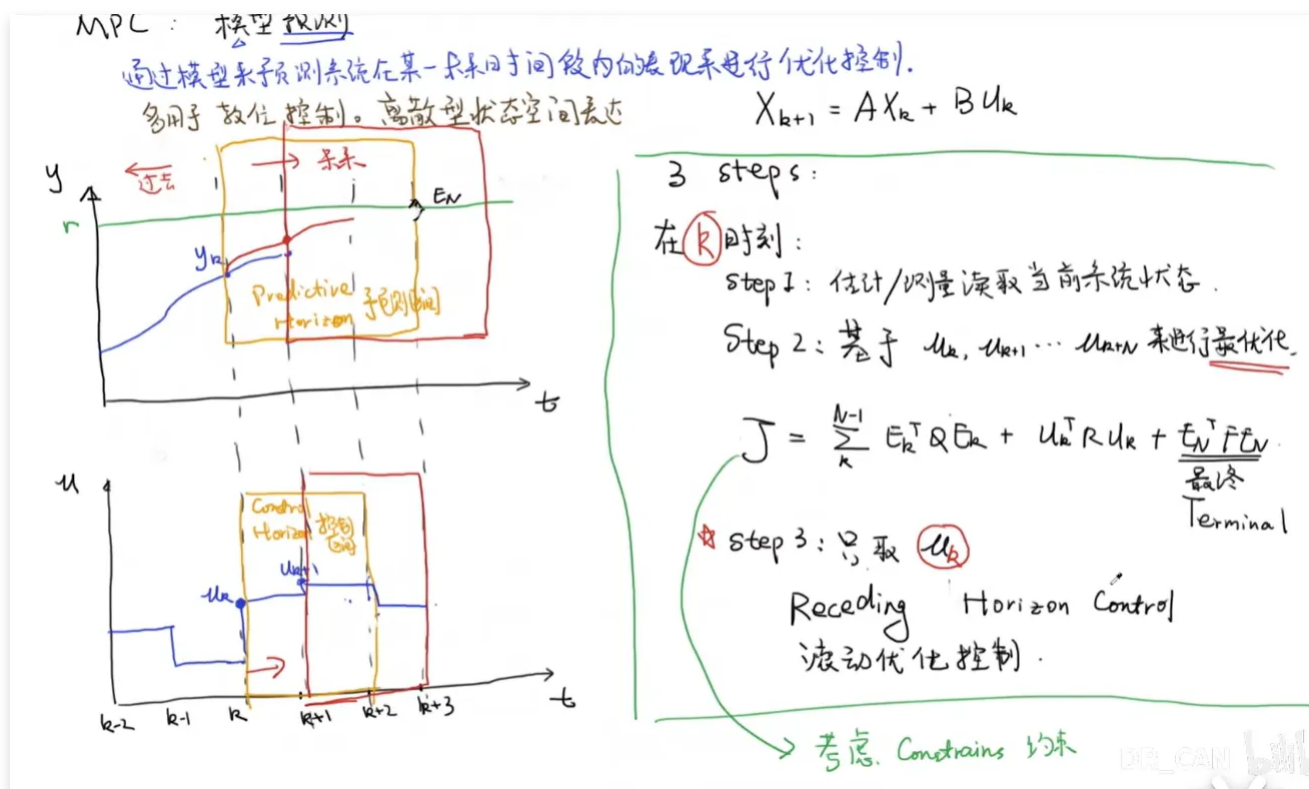 MPC： 模型预测
通过模型来预测系统在某一未来时间段内的表现来进行优化控制.
多用于 数位控制。离散型状态空间表达
X_{k+1} = AX_k + BU_k
y
过去
未来
r
E_N
y_k
Predictive
Horizon
预测区间
t
u
Control
Horizon
控制
区间
u_k
u_{k+1}
k-2 k-1 k k+1 k+2 k+3
t
3 steps:
在 k 时刻:
step 1: 估计/测量读取当前系统状态.
Step 2: 基于 u_k, u_{k+1} ... u_{k+N} 来进行最优化.
J = ∑_k^{N-1} E_k^T Q E_k + U_k^T R U_k + E_N^T F E_N
最终
Terminal
☆ step 3: 只取 u_k
Receding Horizon Control
滚动优化控制.
考虑. Constrains 约束
DR_CAN